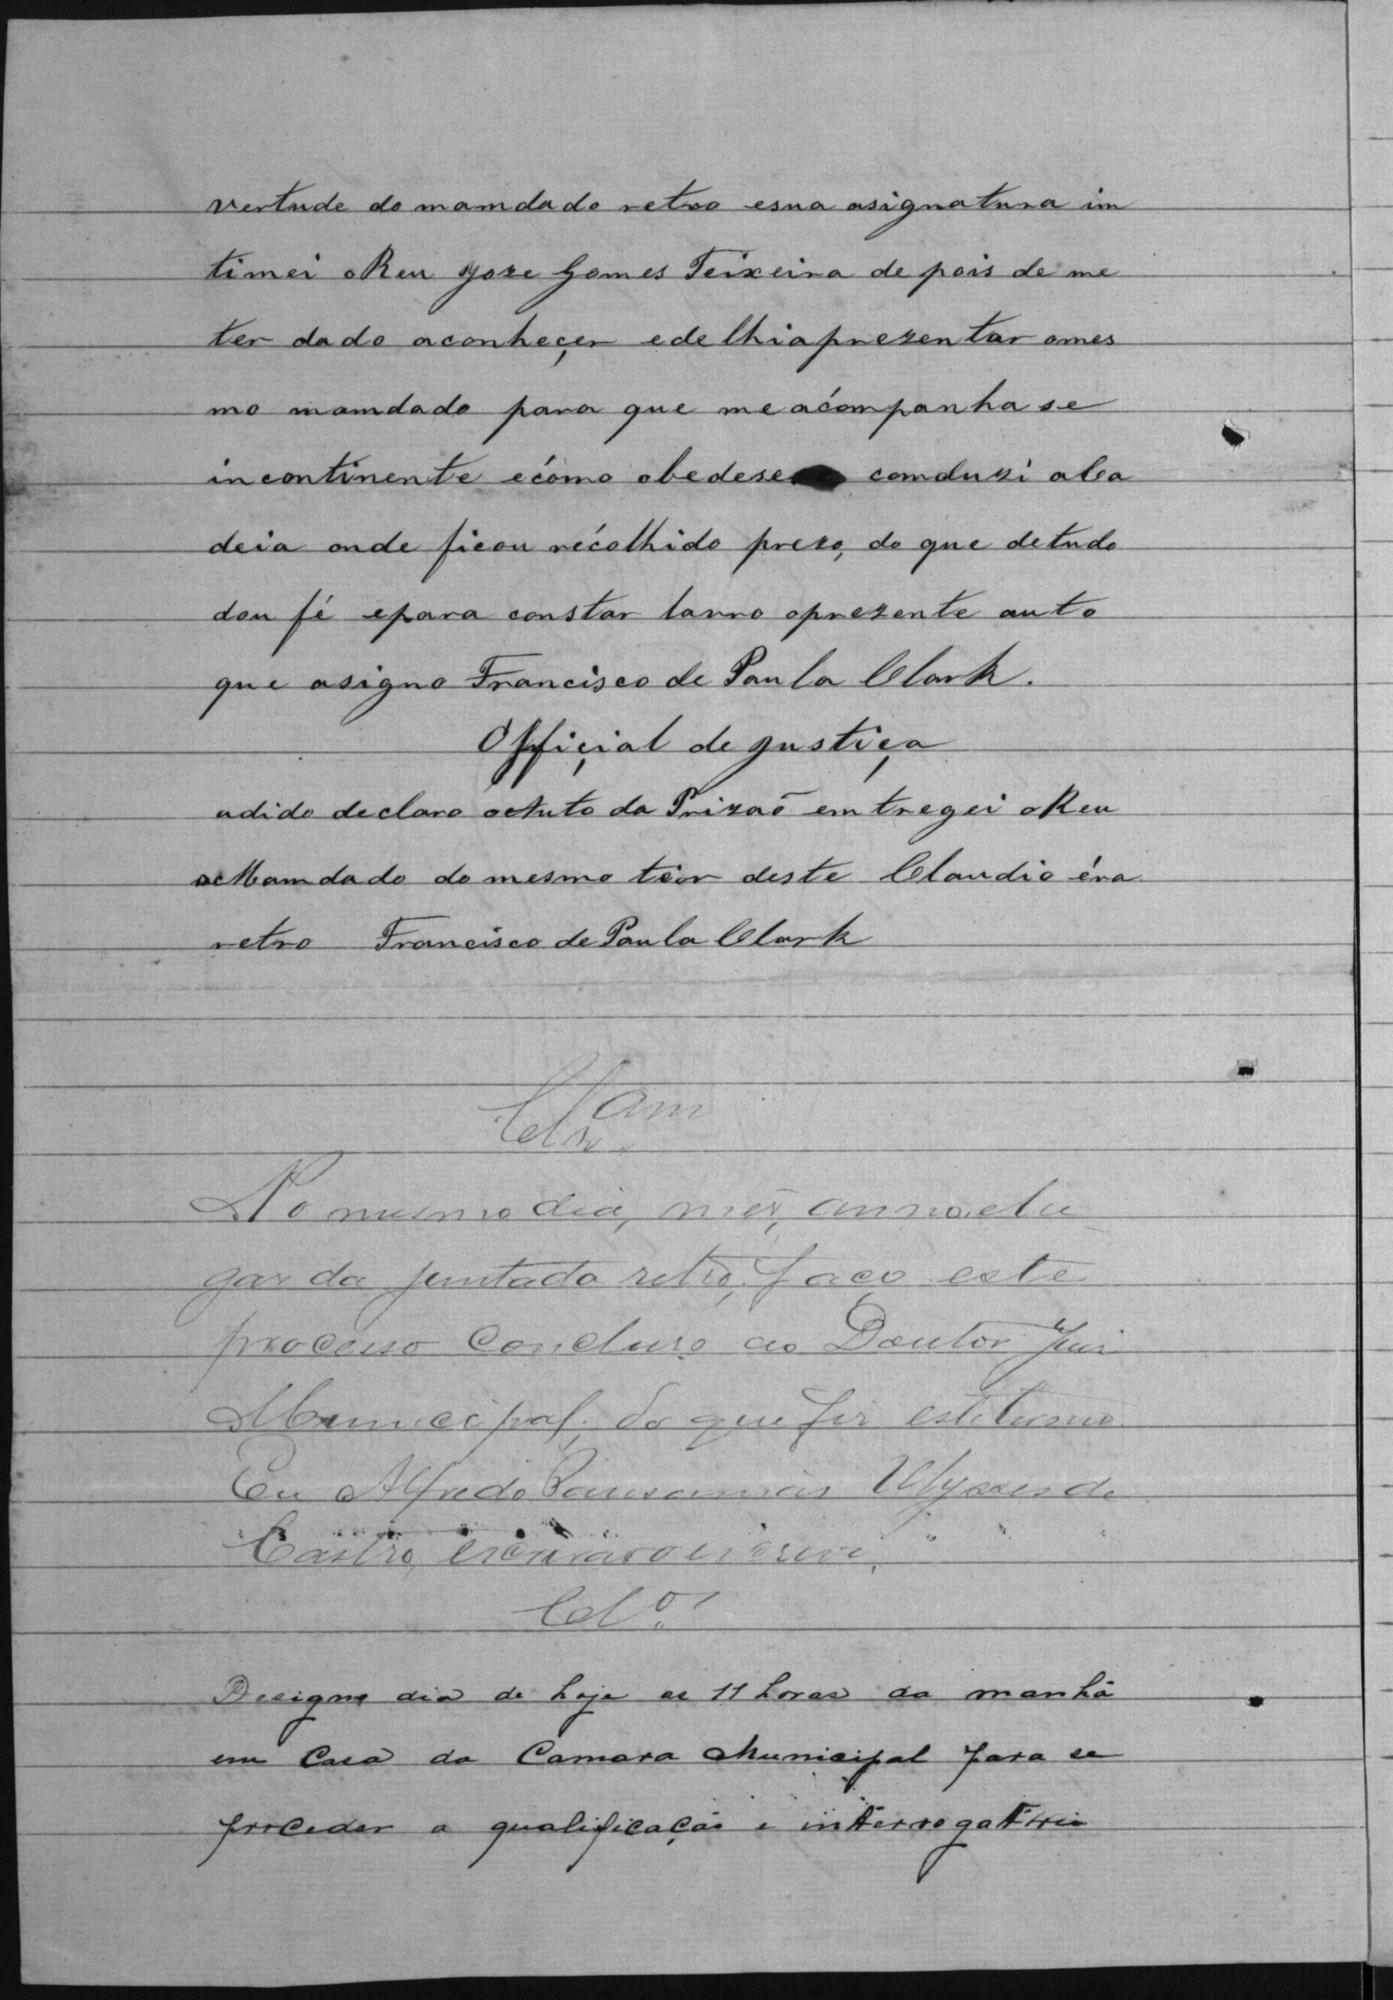 vertude do mamdado retro esua asignatura im
timei oReu Joze Gomes Teixeira de pois de me
ter dado aconheçer edelhiaprezentar omes
mo mamdado para que meacompanhase
incontinente ecómo obedese comduzi aCa
deia onde ficou récolhido prezo, do que detudo
dou fé epara constar lavro oprezente auto
que asigno Francisco de Paula Clark.
Offiçial de Justiça
adido declaro oAuto da Prizaõ emtregei oReu
oMamdado do mesmo tior deste Claudio éra
retro Francisco de Paula Clark
Clsam
No mesmo dia, mez, anno e lu
gar da juntada retro, faço este
processo concluso ao Doutor Juiz
Municipal, do que fiz este termo.
Eu Alfredo Pausanias Ulysses de
Castro, escrivão o escrevi.
Clo.
Designo dia de hoje as 11 horas da manhã
em Casa da Camara Municipal para se
proceder a qualificação e interrogatorio